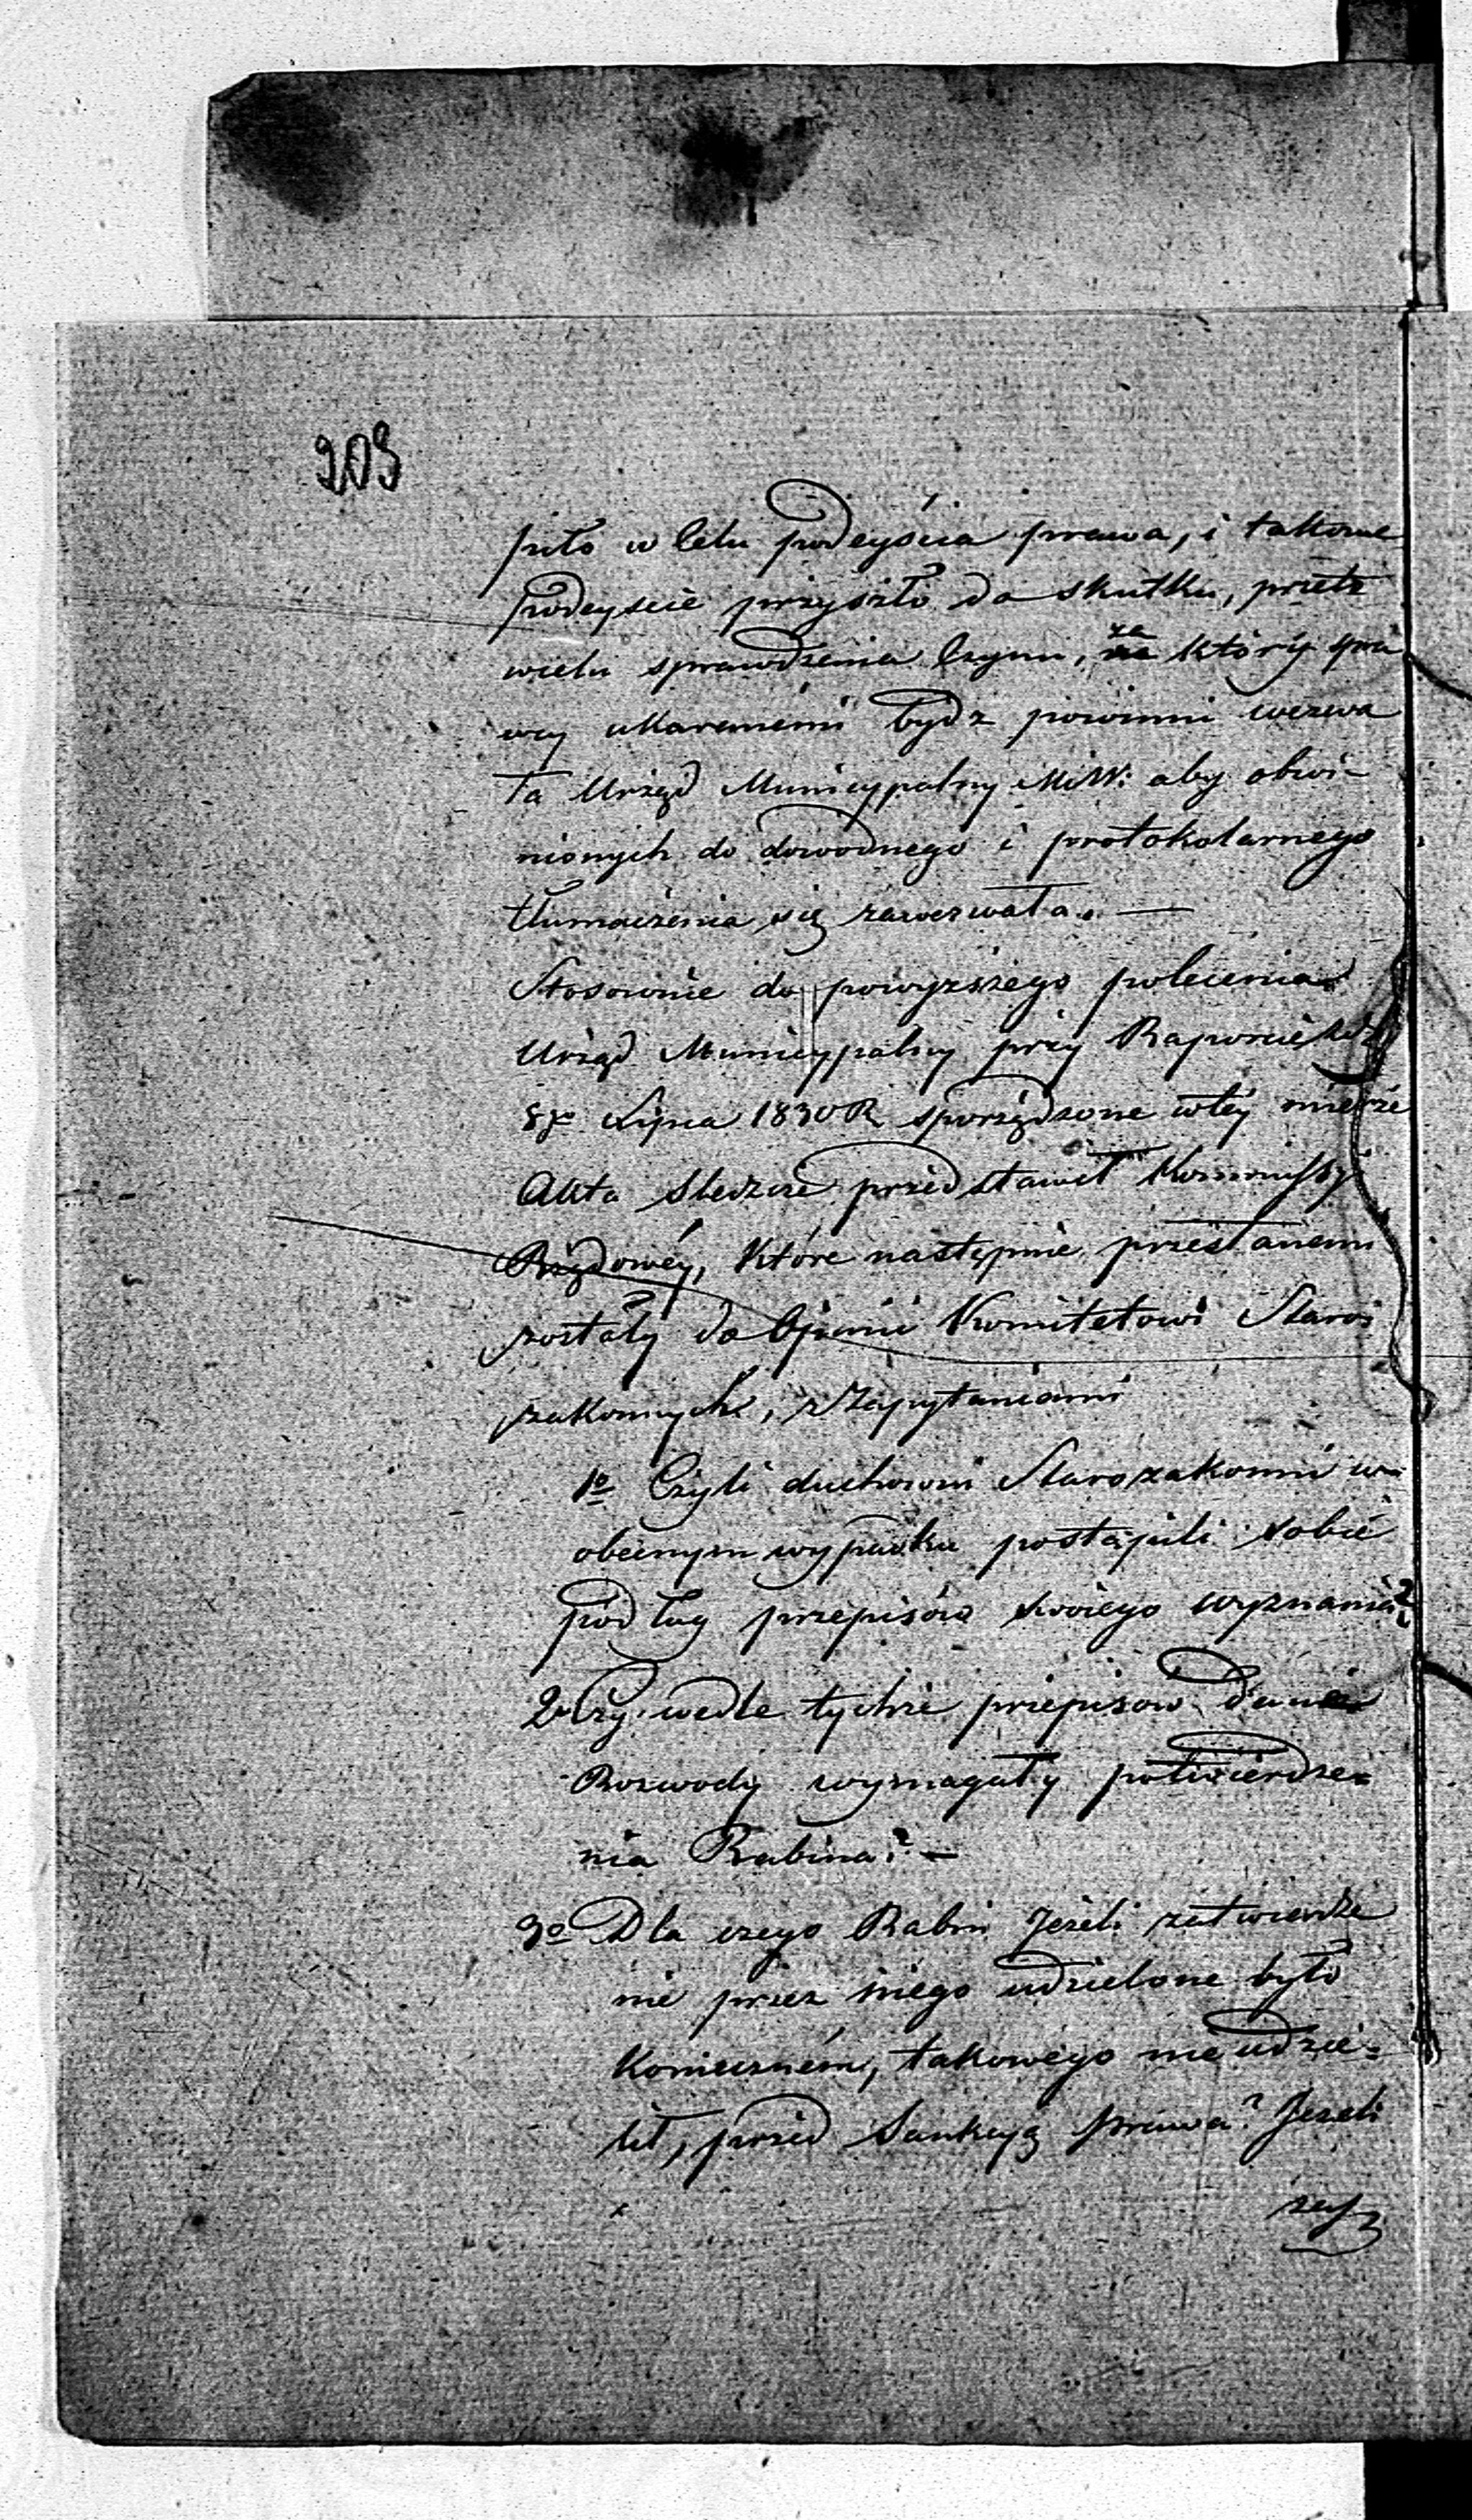 203
piło w Celu podeyścia prawa, i takowe
podeyscie przyszło do skutku, przeto
wielu sprawdzenia Czynu, za który spra
wcy ukaranemi bydz powinni wezwa
ła Urząd Municypalny M:W: aby obwi-
nionych do dowodnego i protokolarnego
tłumaczenia się zawezwała. —
Stosownie do powyższego polecenia
Urząd Municypalny przy Raporcie z d:
8go Lipca 1830 R sporządzone wtéy mierze
Akta Sledcze przedstawił Kommissyi
Rządowéy, Które następnie przesłanemi
zostały do Opinii Komitetowi Staro
zakonnych, z Zapytaniami
1o Czyli duchowni Starozakonni w
obecnym wypadku postąpili sobie
podług przepisów swoiego wyznania?
2o Czy wedle tychże przepisow dane
Rozwody wymagały potwierdze=
nia Rabina? —
3o Dla czego Rabin Jeżeli zatwierdze
nie przez niego udzielone było
Konieczném, takowego nie udzie=
lił, przed Sankcyą prawa? Jeżeli
zaś